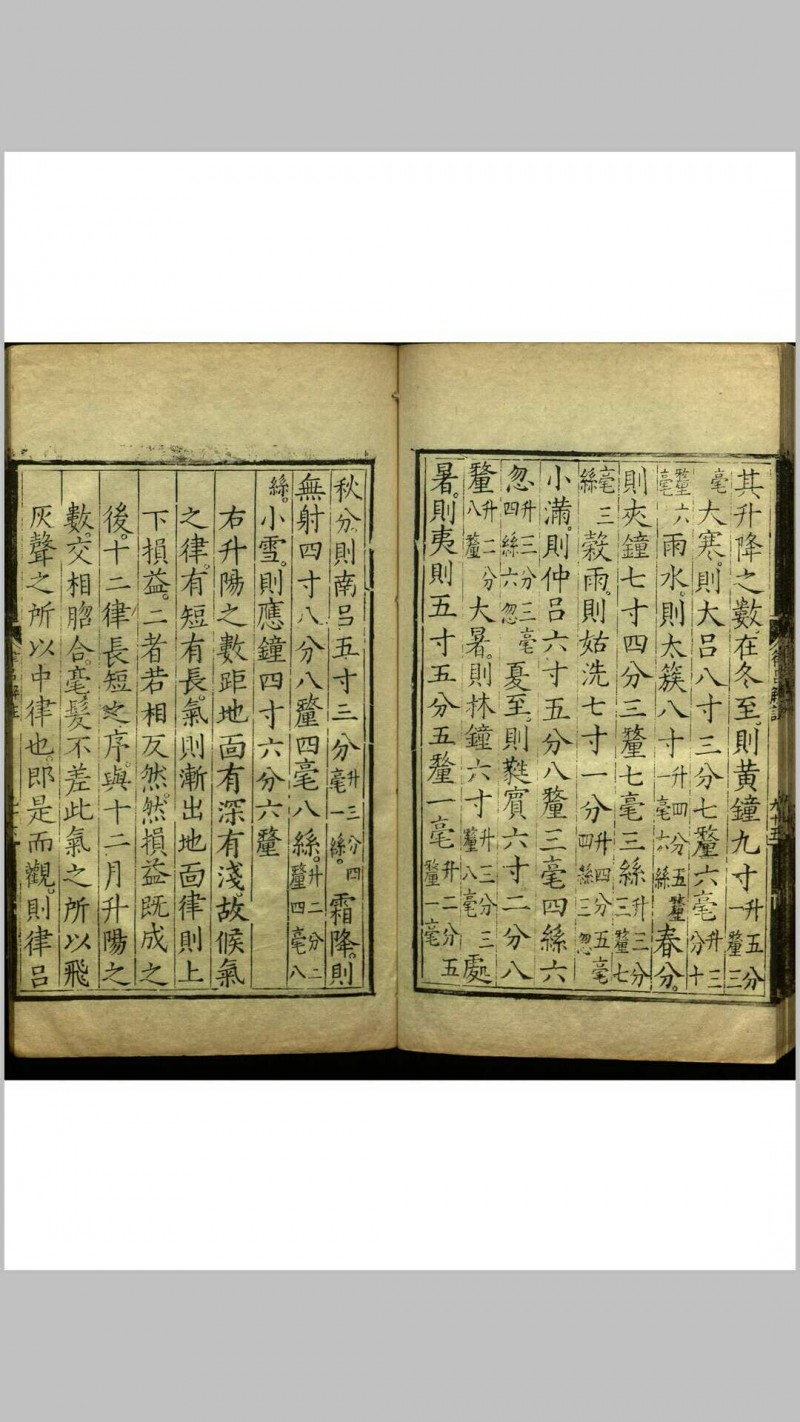 其升降之數在冬至則黃鐘九寸升五分一釐三
毫大寒。則大呂八寸三分七釐六毫升三分十
釐六毫雨水。則太簇八寸一升四分五釐毫六絲春分。
則夾鐘七寸四分三釐七毫三絲升三分三釐七
毫三絲穀雨。則姑洗七寸一分升四分五毫四絲三忽
小滿。則仲呂六寸五分八釐三毫四絲六
忽升三分三毫四絲六忽夏至。則蕤賓六寸二分八
釐升二分八釐大暑。則林鐘六寸升三分三釐八毫處
暑。則夷則五寸五分五釐一毫升二分五釐一毫
秋分。則南呂五寸三分升三分四毫一絲。霜降。則
無射四寸八分八釐四毫八絲。升二分二釐四毫八
絲。小雪。則應鐘四寸六分六釐
右升陽之數距地面有深有淺。故候氣
之律。有短有長。氣則漸出地面律則上
下損益。二者若相反然。然損益既成之
後。十二律長短之序。與十二月升陽之
數。交相脗合。毫髮不差此氣之所以飛
灰聲之所以中律也。卽是而觀。則律呂